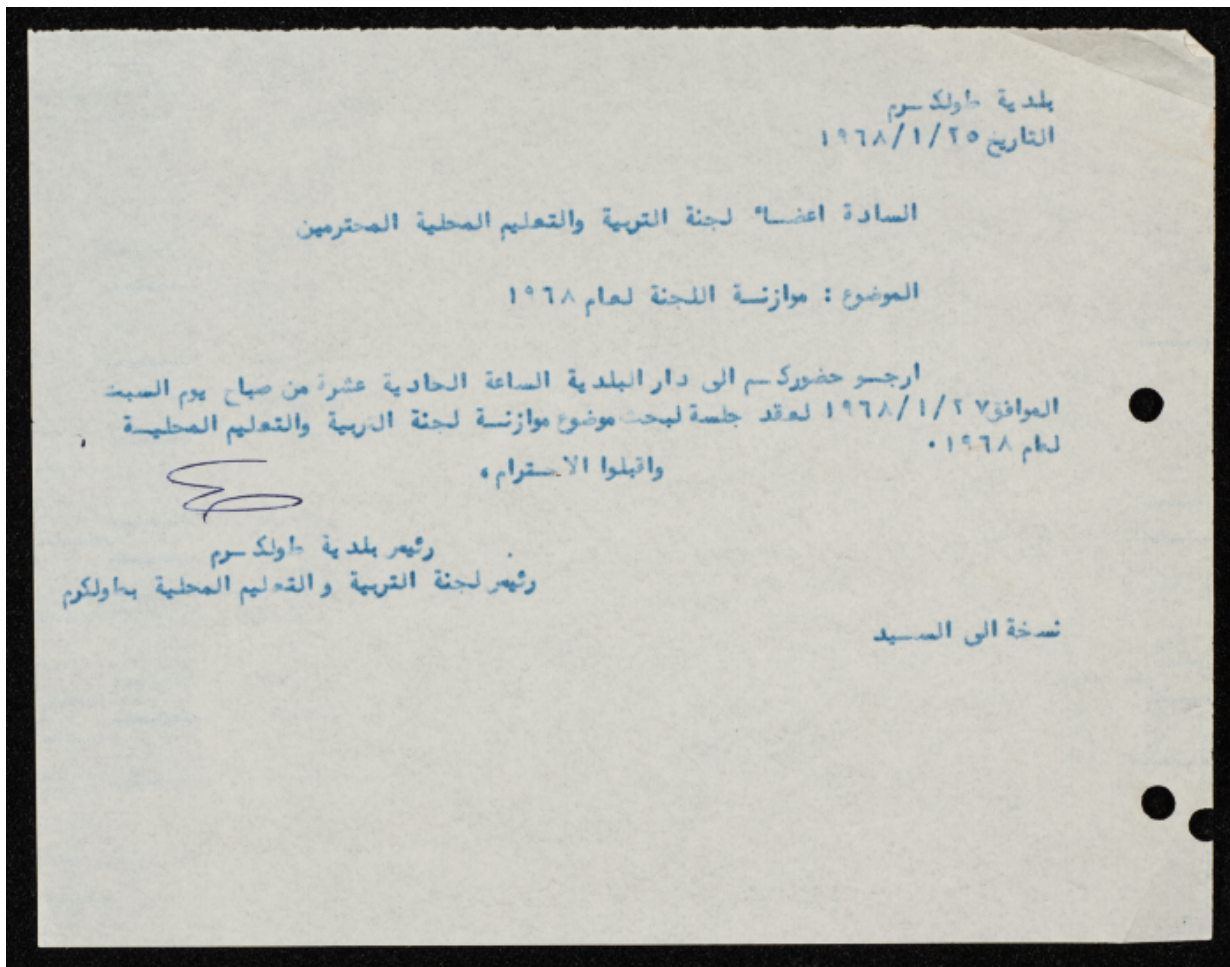 بلدية طولكرم
التاريخ ١٩٦٨/١/٢٥
السادة اعضاء لجنة التربية والتعليم المحلية المحترمين
الموضوع : موازنة اللجنة لعام ١٩٦٨
ارجو حضوركم الى دار البلدية الساعة الحادية عشرة من صباح يوم السبت
الموافق ١٩٦٨/١/٢٧ لعقد جلسة لبحث موضوع موازنة لجنة التربية والتعليم المحلية
لعام ١٩٦٨ .
واقبلوا الاحترام ،
رئيس بلدية طولكرم
رئيس لجنة التربية والتعليم المحلية بطولكرم
نسخة الى السيد